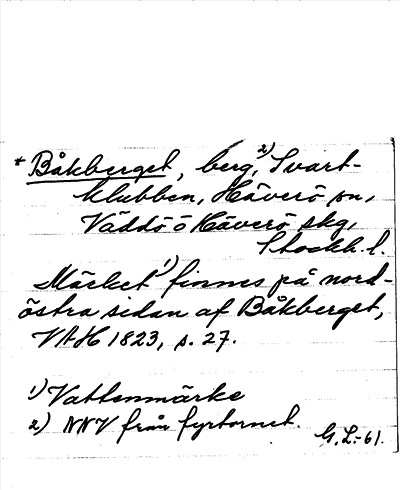 * Båkberget, berg,2) Svart-
klubben, Häverö sn,
Väddö ö Häverö skg,
Stockh. l.
Märket1) finnes på nord-
östra sidan af Båkberget,
VAH 1823, s. 27.
1) Vattenmärke
2) NNV från fyrtornet.
G. L.-61.